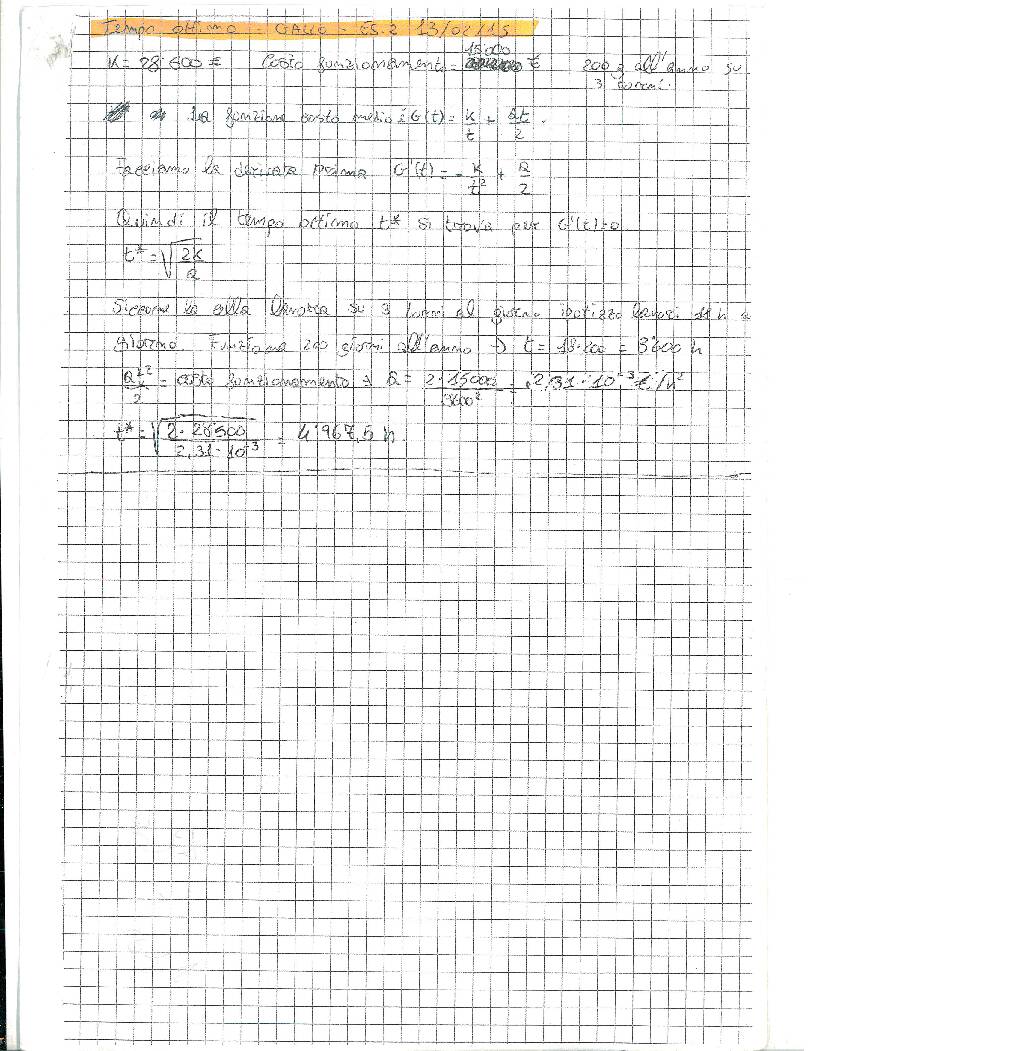 Tempo ottimo - GALLO - ES.2 13/02/15
K = 28'600 € Costo funzionamento = 15'000 € 200 g all'anno su 3 turni.
La funzione costo medio è G(t) = K/t + Qt/2.
Facciamo la derivata prima G'(t) = - K/t² + Q/2
Quindi il tempo ottimo t* si trova per G'(t)=0
t* = √(2K/Q)
Siccome la lavora su 3 turni al giorno ipotizzo lavori h a
giorno. Funziona 200 giorni all'anno → t = 18·200 = 3'600 h
Qt²/2 = costo funzionamento → Q = 2·15000/3600² = 2,31·10⁻³ €/h²
t* = √(2·28500/2,31·10⁻³) = 4'967,5 h.